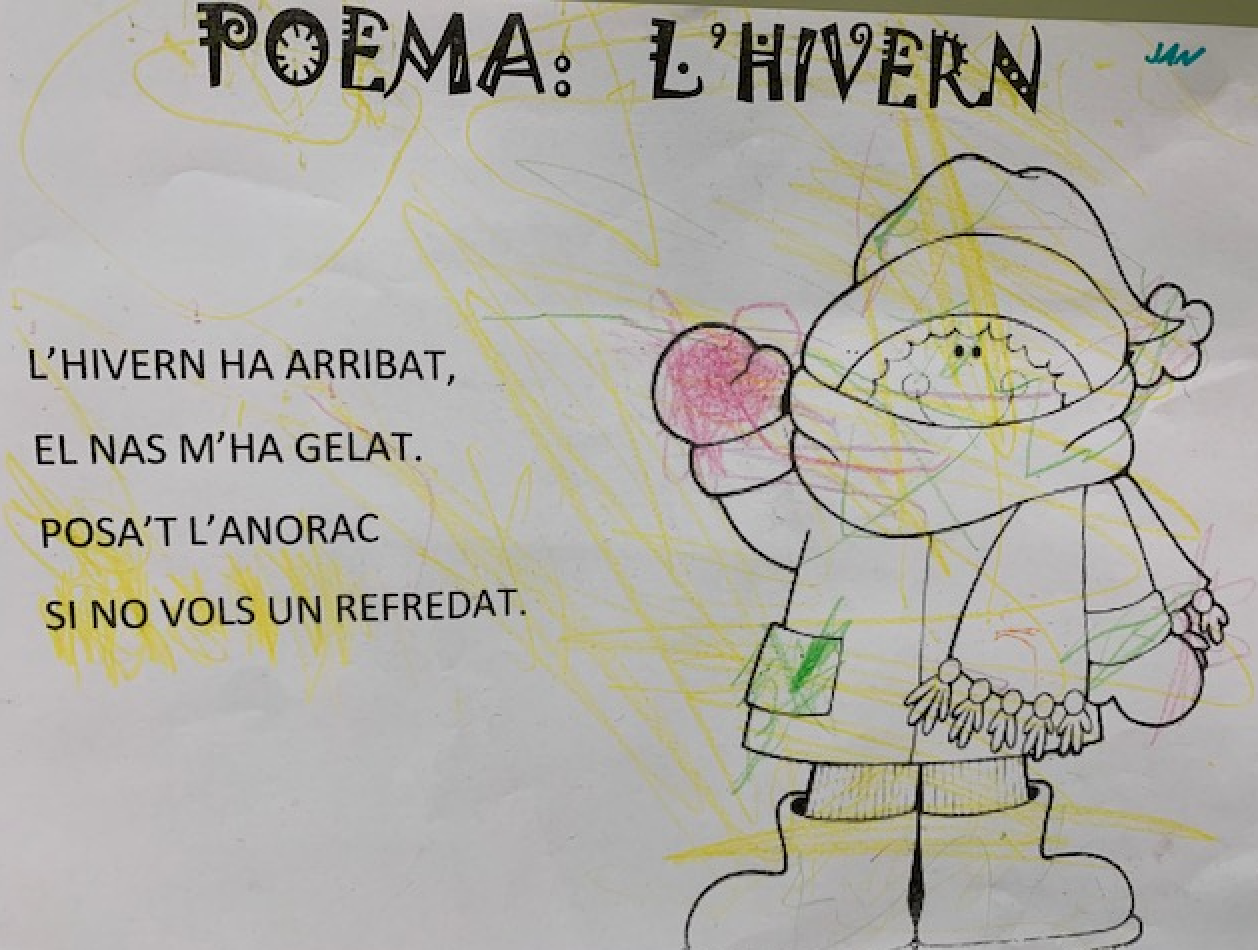 POEMA: L'HIVERN
JAN
L'HIVERN HA ARRIBAT,
EL NAS M'HA GELAT.
POSA'T L'ANORAC
SI NO VOLS UN REFREDAT.